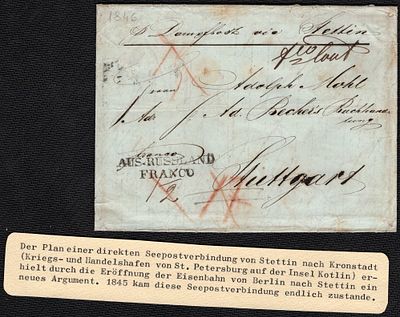 1846
pr Dampfboot via Stettin
Herrn Adolph Mohl
pr Adr f. Ad. Becher's Buchhand
lung
franco
AUS-RUSSLAND
FRANCO
Stuttgart
Der Plan einer direkten Seepostverbindung von Stettin nach Kronstadt
(Kriegs- und Handelshafen von St. Petersburg auf der Insel Kotlin) er-
hielt durch die Eröffnung der Eisenbahn von Berlin nach Stettin ein
neues Argument. 1845 kam diese Seepostverbindung endlich zustande.